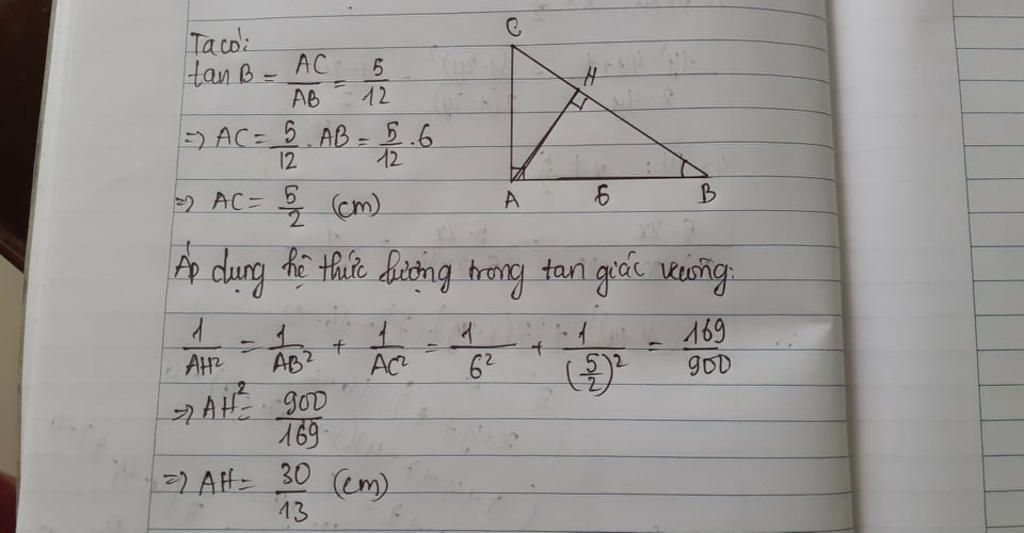 Ta có:
tan B = AC/AB = 5/12
=> AC = 5/12 . AB = 5/12 . 6
=> AC = 5/2 (cm)
C
H
A
6
B
Áp dụng hệ thức lượng trong tan giác vuông:
1/AH² = 1/AB² + 1/AC² = 1/6² + 1/(5/2)² = 169/900
=> AH² = 900/169
=> AH = 30/13 (cm)